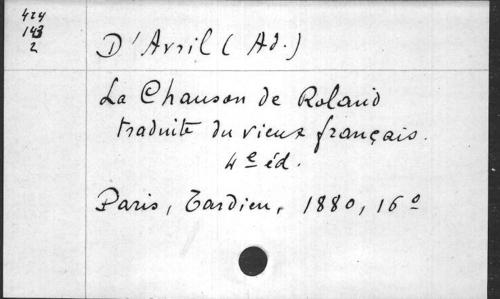 424
143
2
D'Avril (Ad.)
La Chanson de Roland
traduite du vieux français.
4e éd.
Paris, Tardieu, 1880, 16o